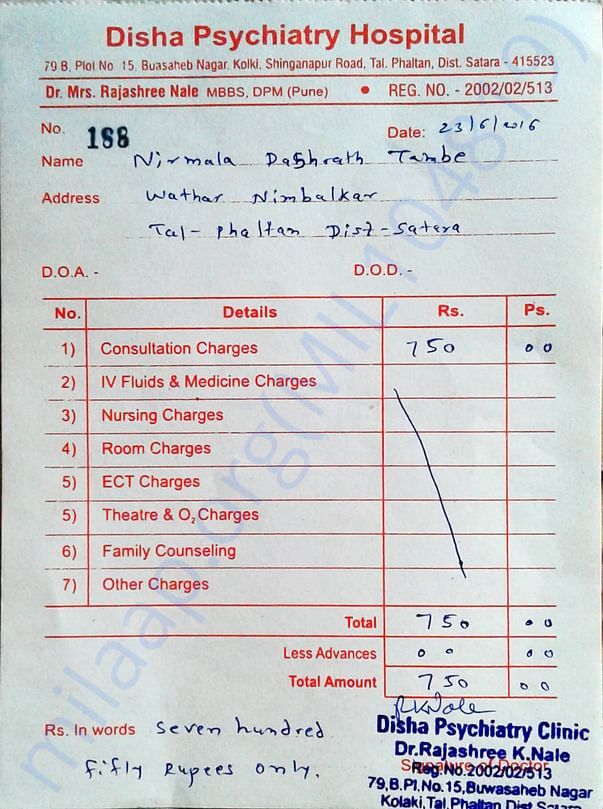 Disha Psychiatry Hospital
79 B, Plot No 15, Buasaheb Nagar, Kolki, Shinganapur Road, Tal. Phaltan, Dist. Satara - 415523
Dr. Mrs. Rajashree Nale MBBS, DPM (Pune) • REG. NO. - 2002/02/513
No. 188 Date: 23/6/2016
Name Nirmala Dashrath Tambe
Address Wathar Nimbalkar
Tal- phaltan Dist-Satara
D.O.A. - D.O.D. -
No. Details Rs. Ps.
1) Consultation Charges 750 00
2) IV Fluids & Medicine Charges
3) Nursing Charges
4) Room Charges
5) ECT Charges
5) Theatre & O₂ Charges
6) Family Counseling
7) Other Charges
Total 750 00
Less Advances 00 00
Total Amount 750 00
Rs. In words Seven hundred
fifty Rupees only.
RKNale
Disha Psychiatry Clinic
Dr.Rajashree K.Nale
Signature of Doctor
Reg.No.2002/02/513
79,B.Pl.No.15,Buwasaheb Nagar
Kolaki,Tal.Phaltan Dist Satara
milaap.org(MIL104819)